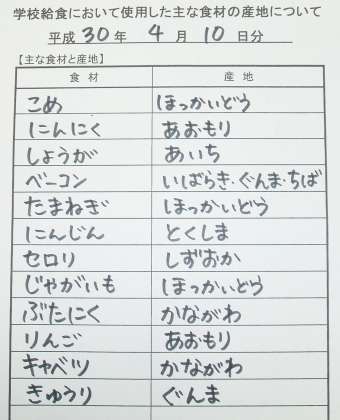 学校給食において使用した主な食材の産地について
平成 30 年 4 月 10 日分
【主な食材と産地】
食材 産地
こめ ほっかいどう
にんにく あおもり
しょうが あいち
ベーコン いばらき・ぐんま・ちば
たまねぎ ほっかいどう
にんじん とくしま
セロリ しずおか
じゃがいも ほっかいどう
ぶたにく かながわ
りんご あおもり
キャベツ かながわ
きゅうり ぐんま